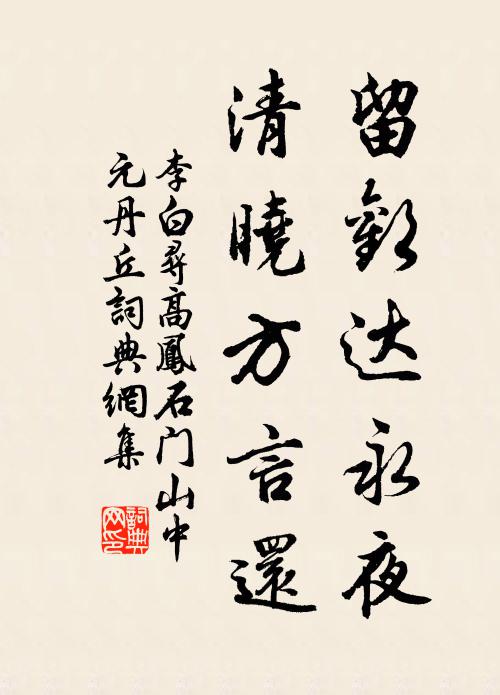 留歡达永夜
清曉方言還
李白尋高鳳石门山中
元丹丘詞典網集
詞典
网印